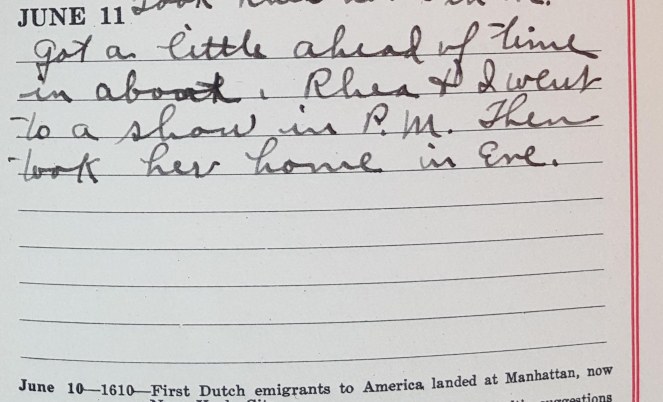 JUNE 11
Got a little ahead of time
in about. Rhea & I went
to a show in P.M. Then
took her home in Eve.
June 10—1610—First Dutch emigrants to America landed at Manhattan, now